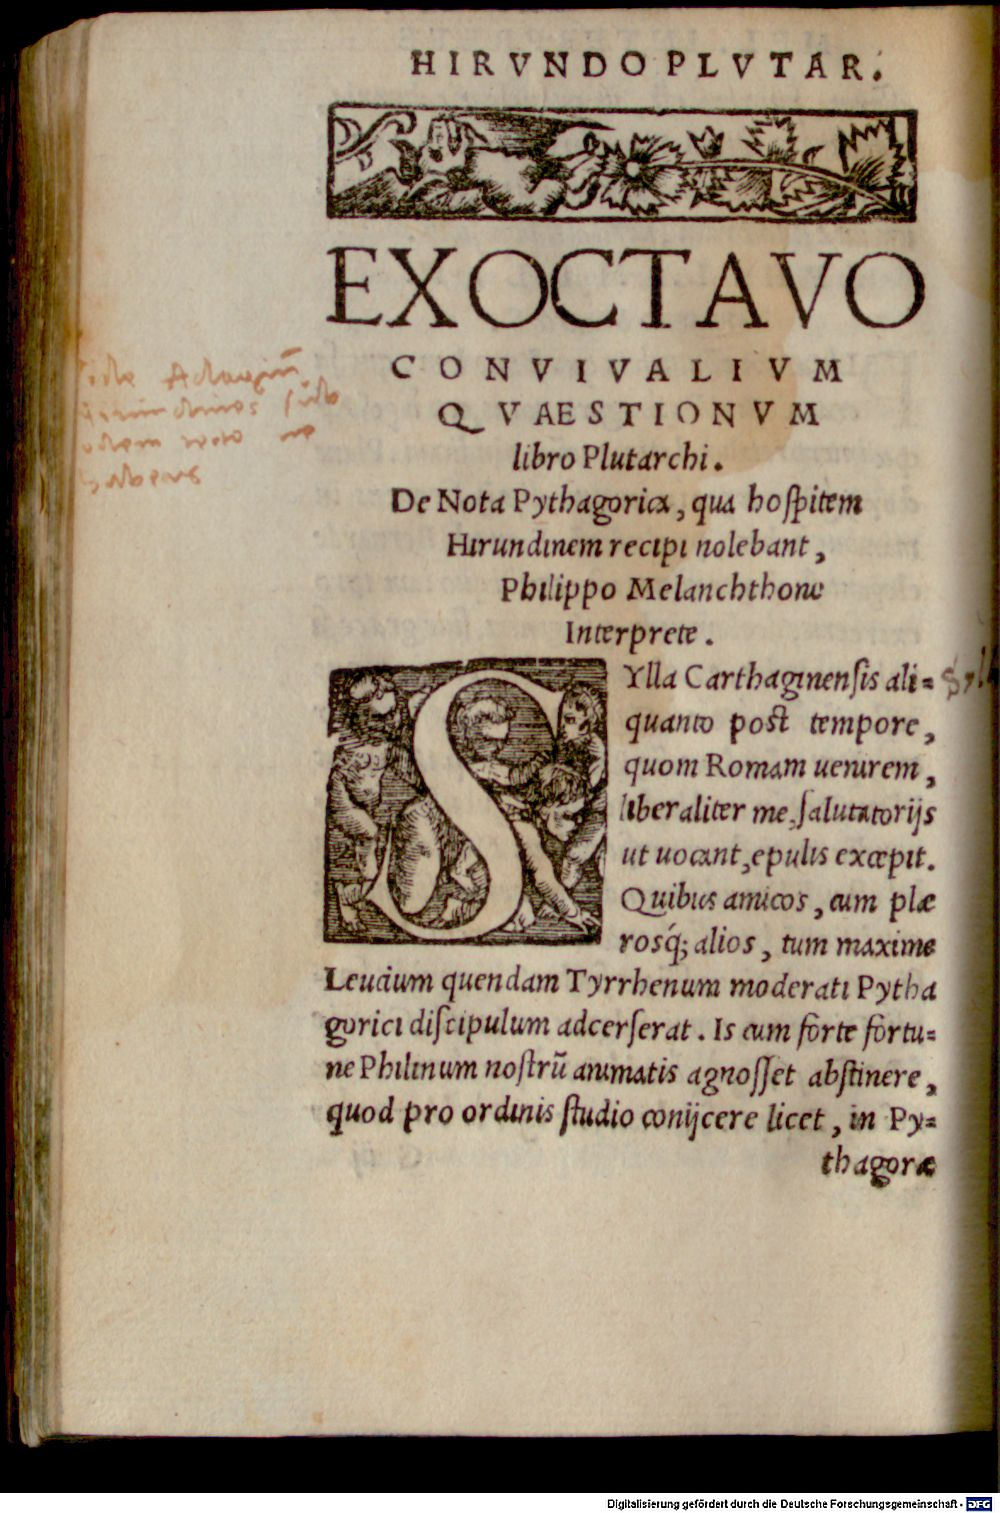 HIRVNDO PLVTAR.
EX OCTAVO
CONVIVALIVM
QVAESTIONVM
libro Plutarchi.
De Nota Pythagorica, qua hoſpitem
Hirundinem recipi nolebant,
Philippo Melanchthone
Interprete.
SYlla Carthaginenſis ali=
quanto poſt tempore,
quom Romam uenirem,
liberaliter me, ſalutatorijs
ut uocant, epulis excœpit.
Quibus amicos, cum plæ
rosq́; alios, tum maxime
Leucium quendam Tyrrhenum moderati Pytha
gorici diſcipulum adcerſerat. Is cum forte fortu=
ne Philinum noſtrũ animatis agnoſſet abſtinere,
quod pro ordinis ſtudio conijcere licet, in Py=
thagoræ
Adagiũ
hirundines sub
Digitalisierung gefördert durch die Deutsche Forschungsgemeinschaft - DFG